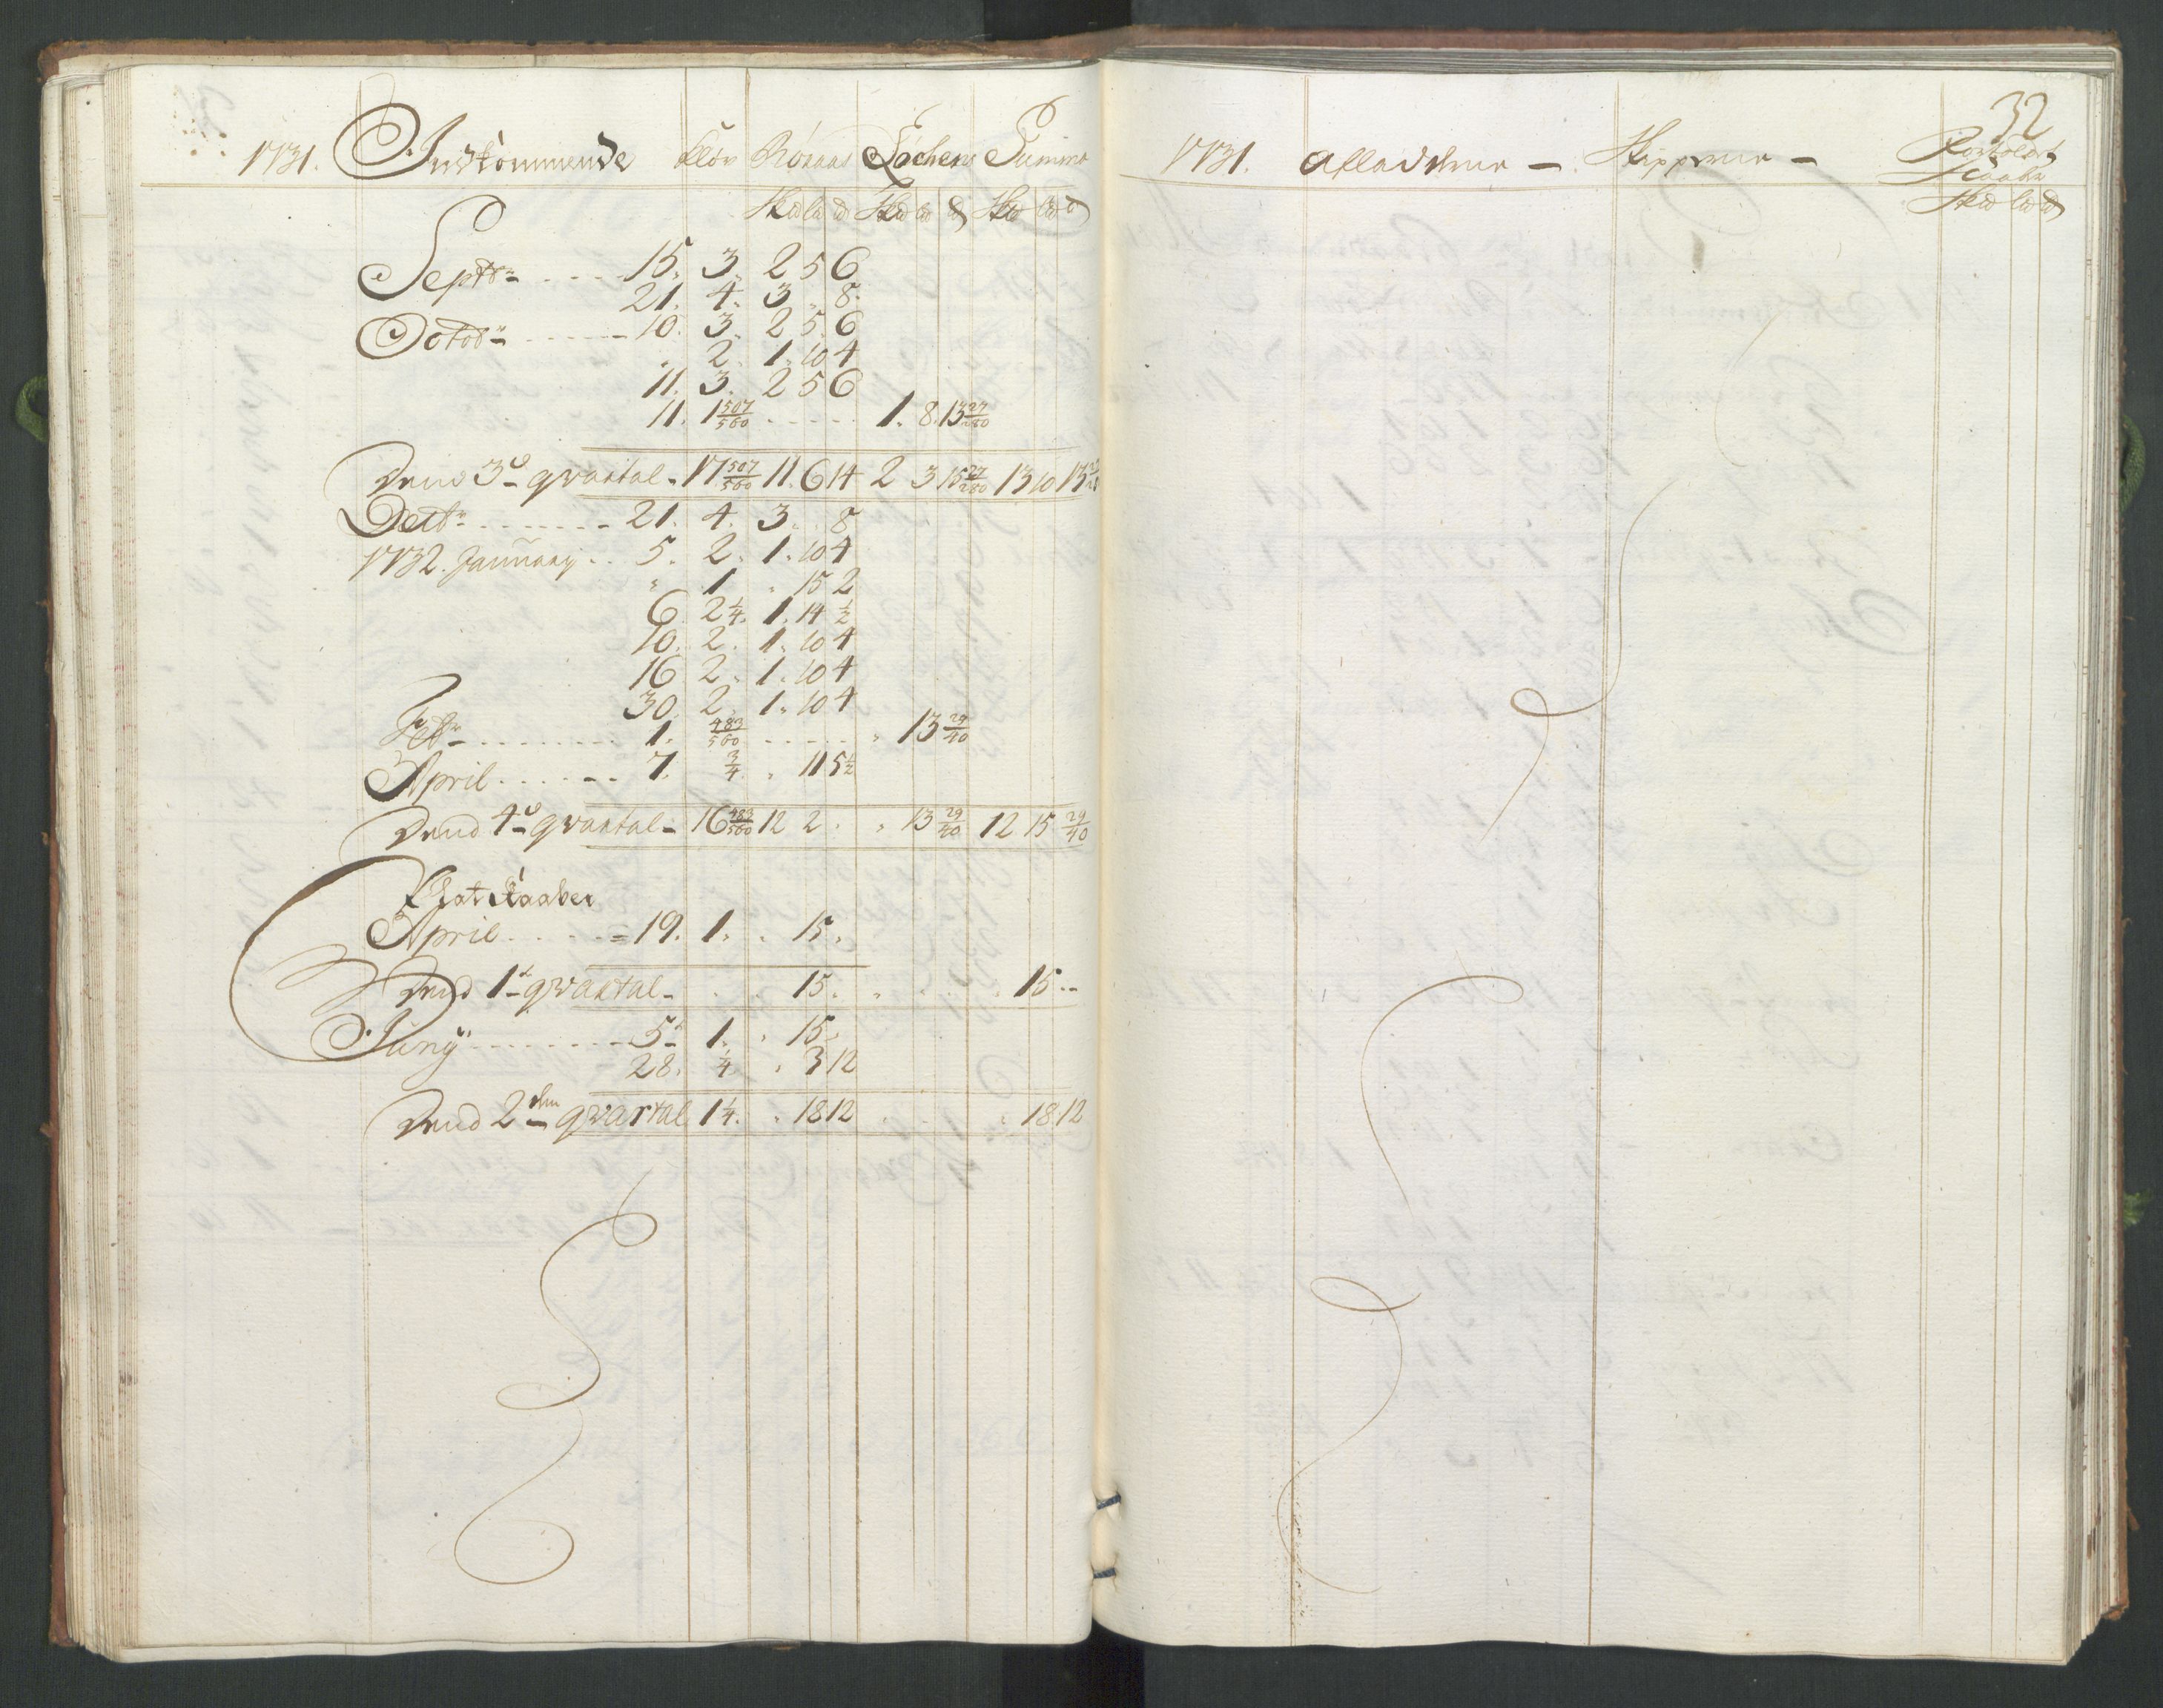 1731. Indkommende Kløv Røraas Løchens Summa
Skd ld d Skd ld d Skd ld d
Septbr. 15. 3. 2 5 6
21. 4. 3 . 8.
Octobr. 10. 3. 2 5 6
" 2. 1. 10 4
11. 3. 2 5 6
11. 1 507/560 1. 8. 13 27/280
Dend 3de qvartal. 17 507/560 11. 6 14 2 3 15 27/280 13 10 13
Decbr. 21. 4. 3. . 8
1732. January .. 5. 2. 1. 10 4
" 1 " 15 2
6. 2 1/4. 1. 14 1/2
10. 2. 1. 10 4
16 2. 1. 10 4
30. 2. 1. 10 4
Febr. 1. 483/560 " 13 29/40
April 7. 3/4 " 11 5 1/2
Dend 4de qvartal 16 483/560 12 2 . " 13 29/40 12 15 29/40
Plat Kaaber
April 19. 1. " 15.
Dend 1te qvartal 15. 15 --
Juny 5te 1. " 15.
28. 1/4 " 3 12
Dend 2den qvartal 1 1/4. " 18 12 " 18 12
32
1731. Afladerne — Skipperne —
Kaaber
Skd ld d